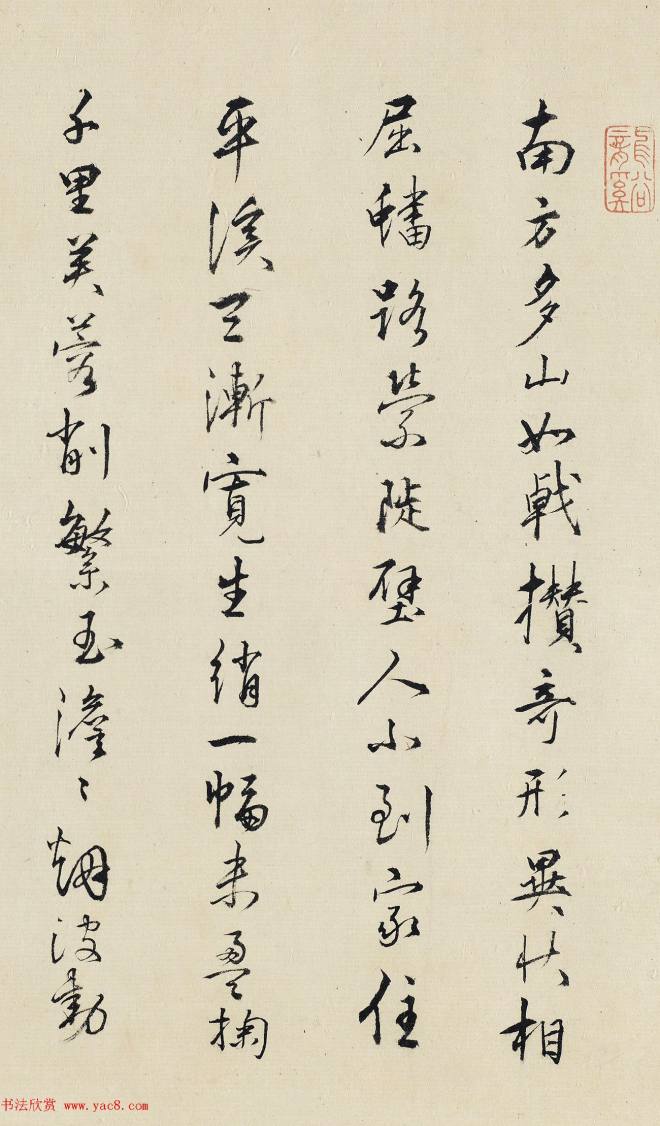 南方多山如戟攢奇形異狀相
屈蟠路縈陡壁人小到家住
平溪天漸寬生綃一幅未盈掬
千里芙蓉削繁玉澹〻烟波動
书法欣赏 www.yac8.com